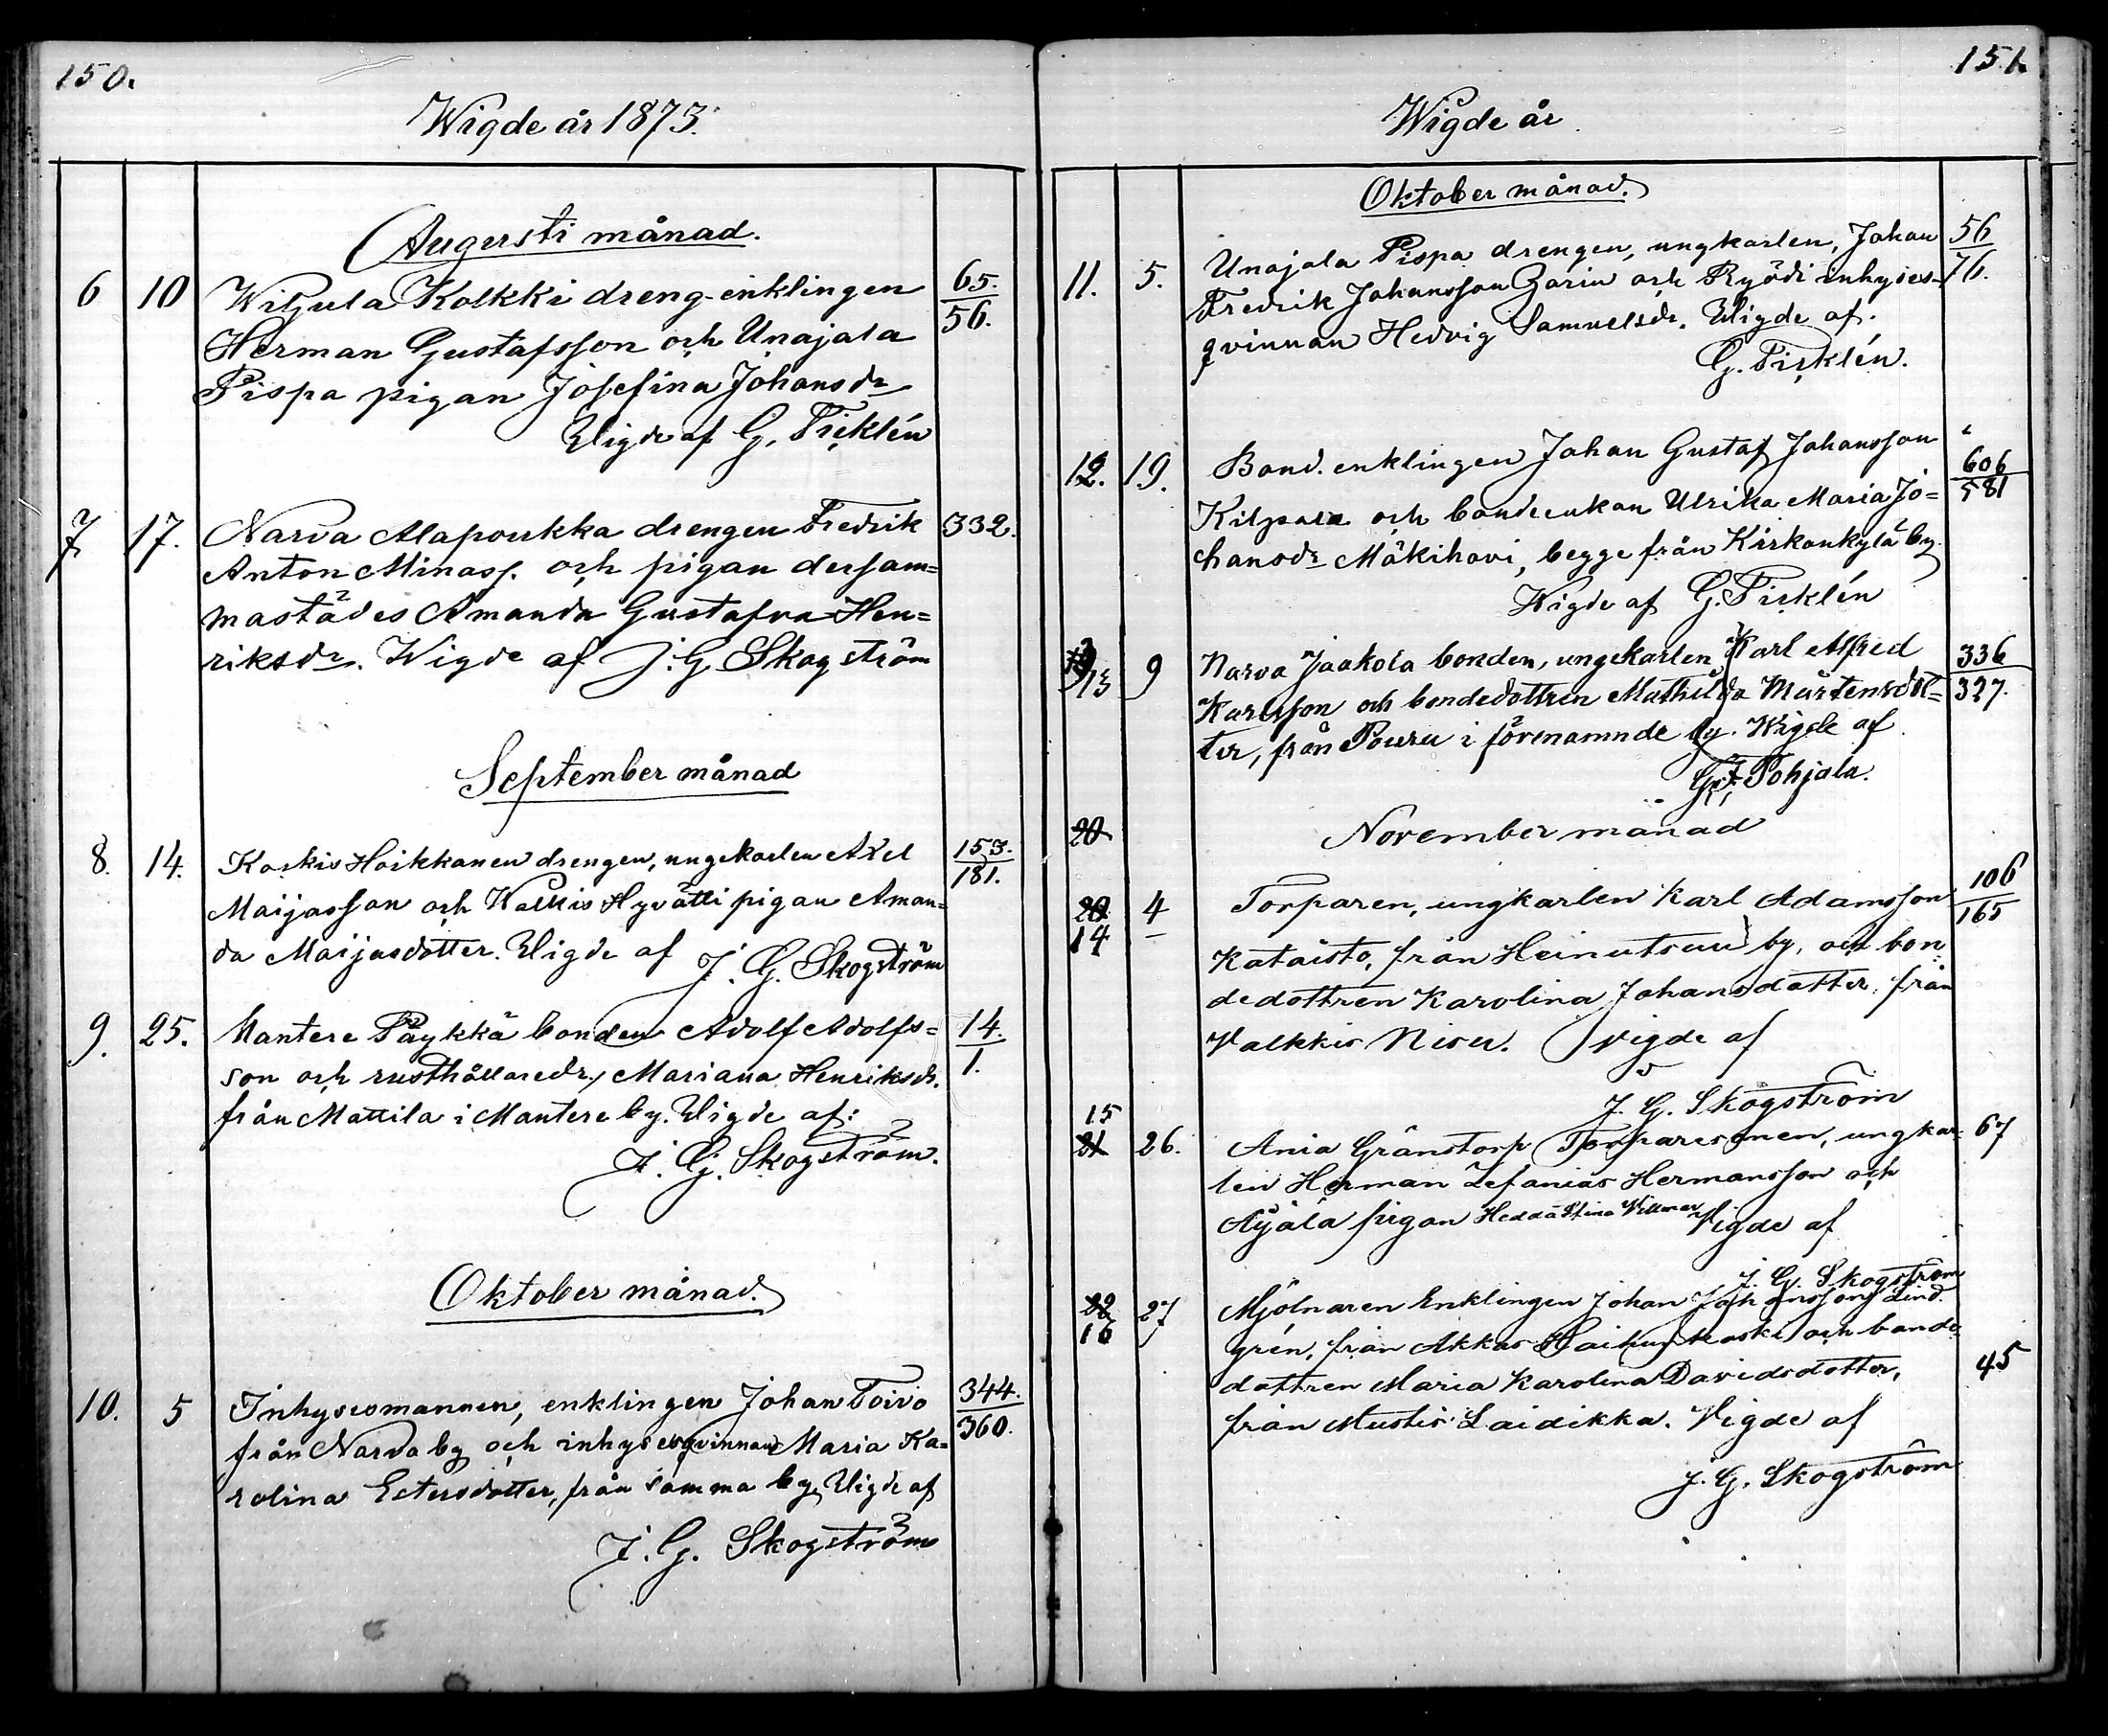 150.
Wigde år 1873.
Augusti månad.
6 10 Wihula Kolkki dreng-enklingen 65.
Herman Gustafsson och Unajala 56.
Pispa pigan Josefina Johansdr
Wigde af G. Firklén
7 17. Narva Alapoukka drengen Fredrik 332.
Anton Minass. och pigan dersam=
mastädes Amanda Gustafva Hen=
riksdr. Wigde af J. G. Skogström
September månad
8. 14. Koskis Hoikkanen drengen, ungekarlen Axel 153.
Maijasson och Kalkis Hyvätti pigan Aman= 181.
da Maijasdotter. Wigde af J. G. Skogström
9. 25. Mantere Päykkä bonden Adolf Adolfs= 14.
son och rusthållaredr., Mariana Henriksdr. 1.
från Mattila i Mantere by. Wigde af:
J. G. Skogström.
Oktober månad.
10. 5 Inhysesmannen, enklingen Johan Toivo 344.
från Narva by och inhysesqvinnan Maria Ka= 360.
rolina Estersdotter, från samma by, Wigde af
J. G. Skogström
151.
Wigde år
Oktober månad.
11. 5. Unajala Pispa drengen, ungkarlen, Johan 56
Fredrik Johansson Zorin och Ryödi inhyses- 76.
qvinnan Hedvig Samuelsdr. Wigde af.
G. Firklén.
12. 19. Bond. enklingen Johan Gustaf Johansson 606
Kilpala och bondeenkan Ulrika Maria Jo= 581
hansdr Mäkihovi, begge från Kirkonkylä by.
Wigde af G. Firklén
13 9 Narva Jaakola bonden, ungekarlen Karl Alfred 336
Karlsson och bondedottren Mathilda Mårtensdot= 327.
ter, från Pouru i förenamnde by. Wigde af
G. F. Pohjala.
20 November månad
20 4 Torparen, ungkarlen Karl Adamsson 106
14 Kataisto, från Heinutsuu by, och bon= 165
dedottren Karolina Johansdotter, från
Valkkis Nisu. Vigde af
J. G. Skogström
15
21 26. Ania Gränstorp Torparesonen, ungkar= 67
len Herman Zefanias Hermansson och
Äijälä pigan Hedda Stina Villman Vigde af
J. G. Skogström
22 27 Mjölnaren Enklingen Johan Johansson Lind=
16 grén, från Akkas Haihunkoski och bonde=
dottren Maria Karolina Davidsdotter, 45
från Mustis Laidikka. Vigde af
J. G. Skogström